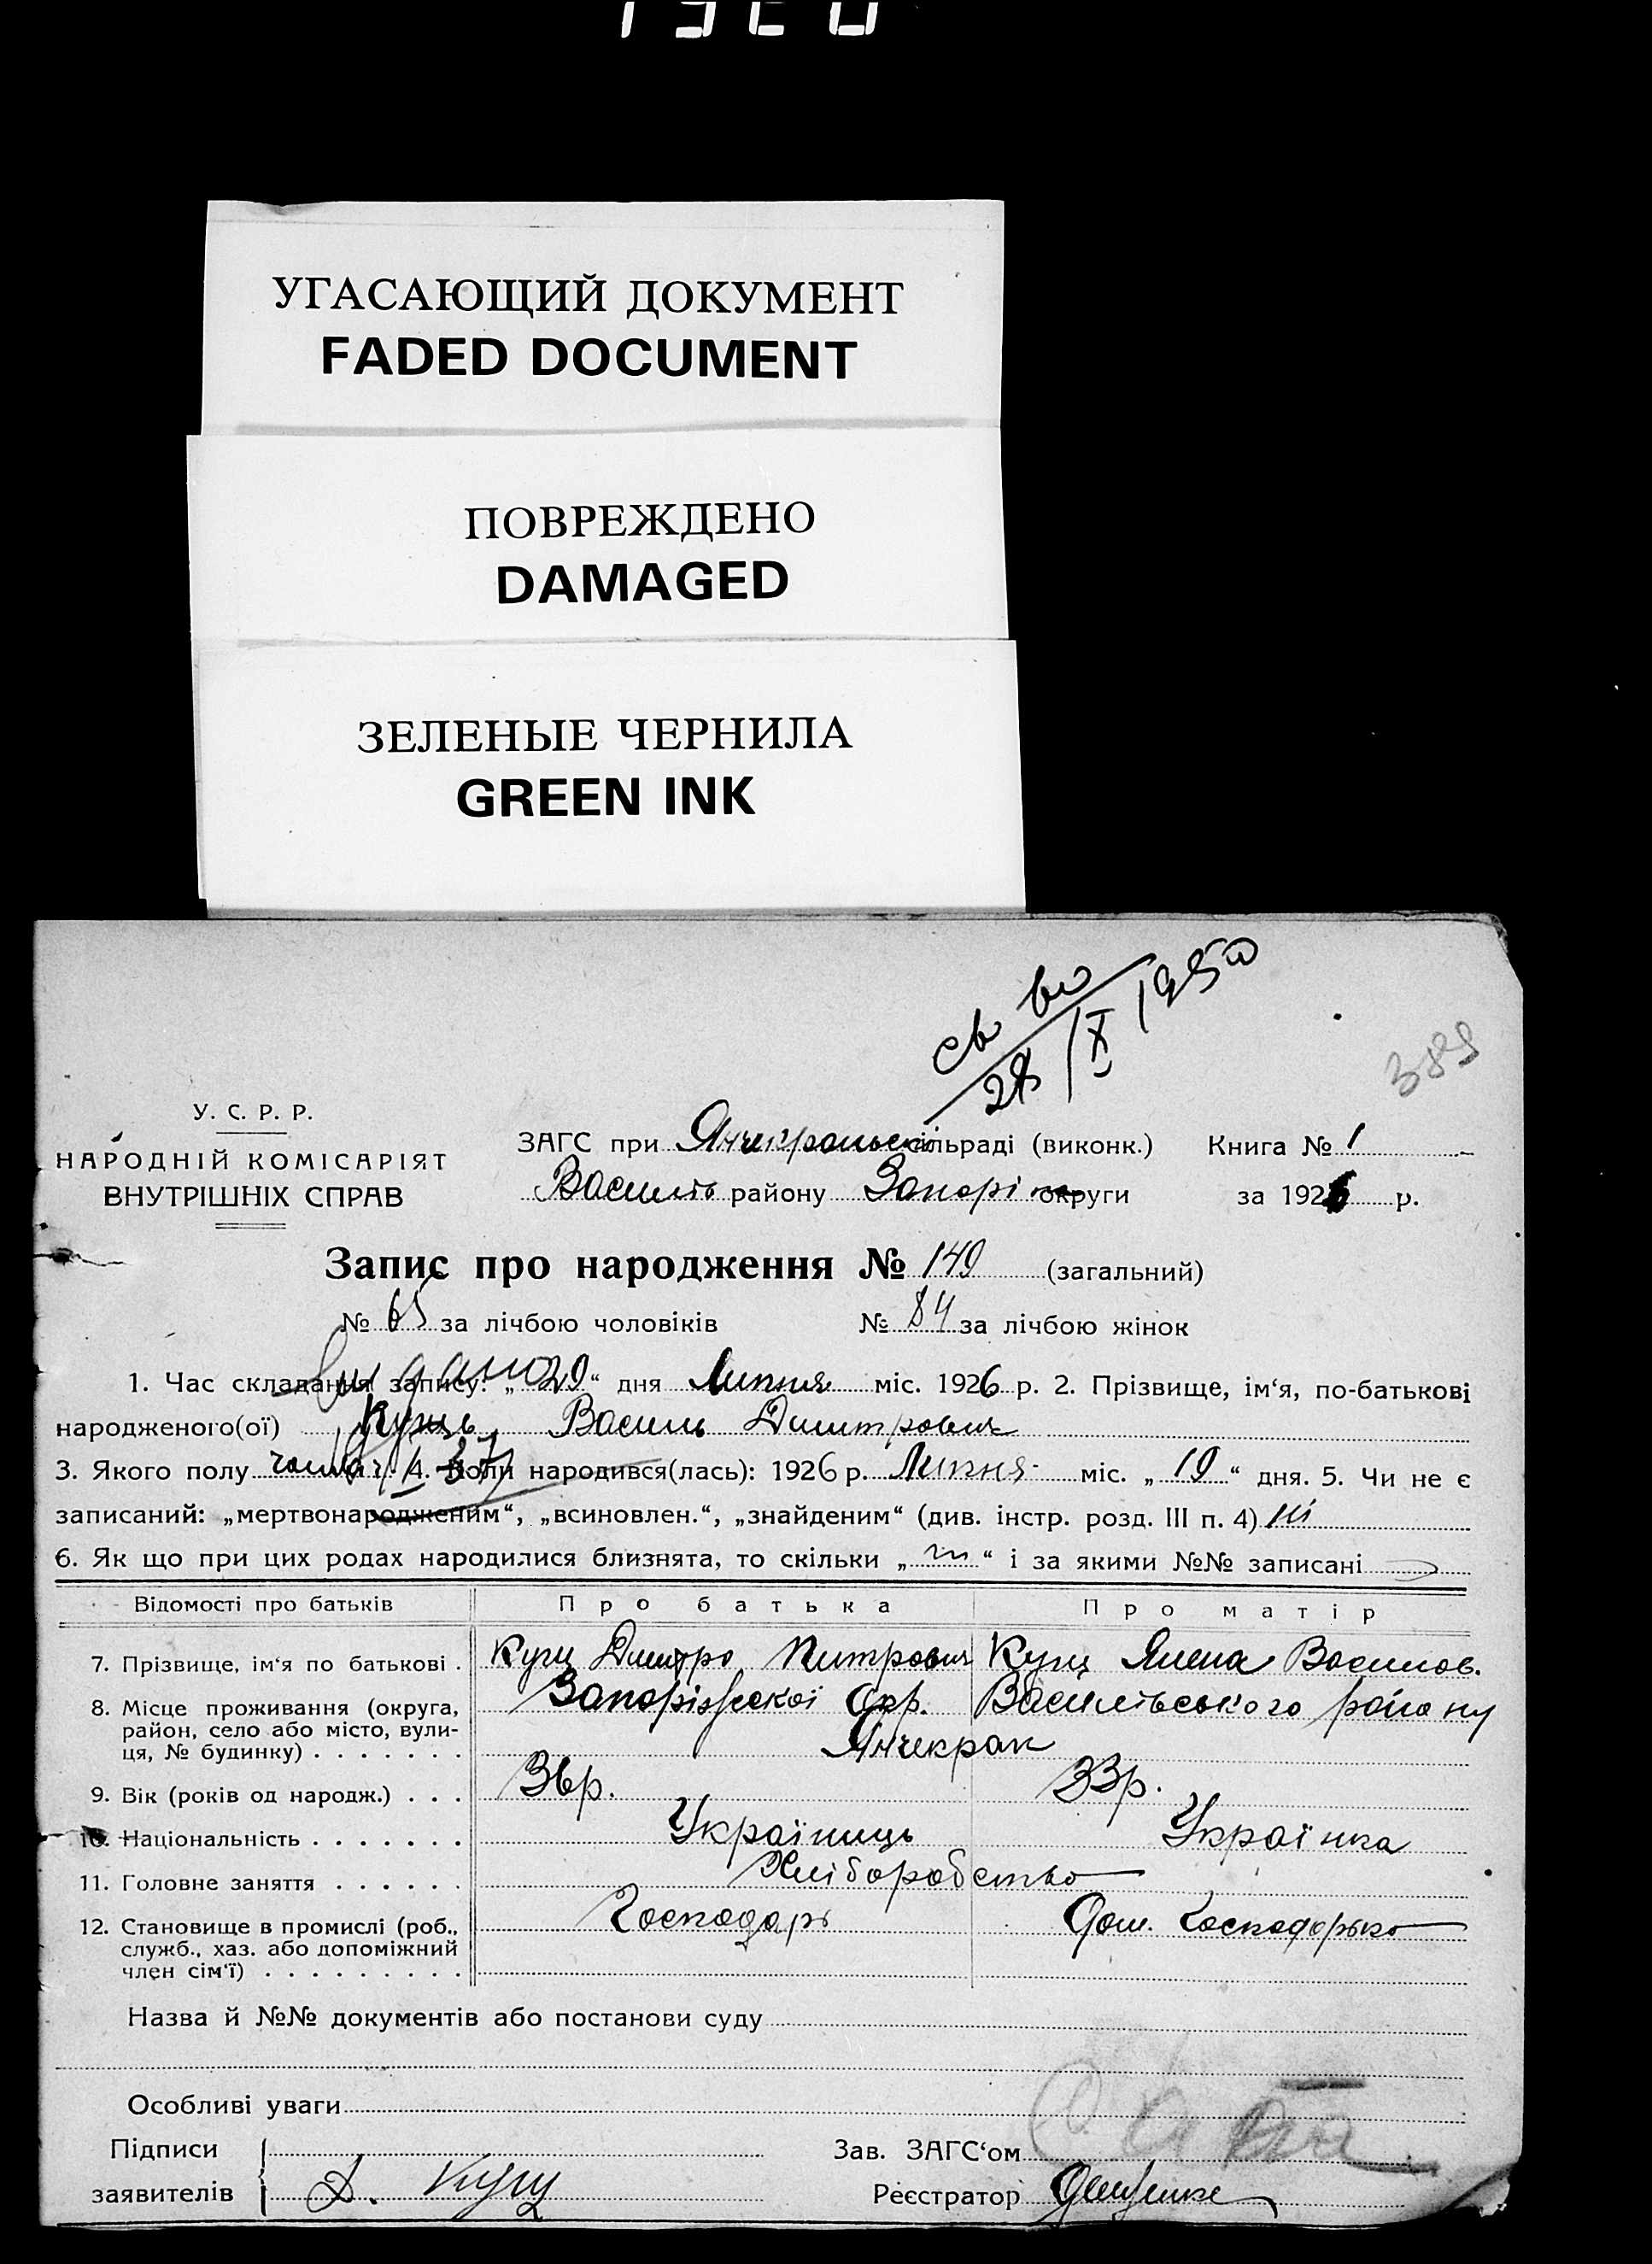 УГАСАЮЩИЙ ДОКУМЕНТ
FADED DOCUMENT
ПОВРЕЖДЕНО
DAMAGED
ЗЕЛЕНЫЕ ЧЕРНИЛА
GREEN INK
св во
28/X 1950
389
У. С. Р. Р.
НАРОДНІЙ КОМІСАРІЯТ
ВНУТРІШНІХ СПРАВ
ЗАГС при Янчекракській сільраді (виконк.) Книга № 1
Василів району Запорі округи за 1926 р.
Запис про народження № 149 (загальний)
№ 65 за лічбою чоловіків № 84 за лічбою жінок
1. Час складання запису: „ 29 “ дня Липня міс. 1926 р. 2. Прізвище, ім‘я, по-батькові
народженого(ої) Куць Василь Дмитрович
3. Якого полу 4. Коли народився(лась): 1926 р. Липня міс. „ 19 “ дня. 5. Чи не є
записаний: „мертвонародженим“, „всиновлен.“, „знайденим“ (див. інстр. розд. III п. 4) ні
6. Як що при цих родах народилися близнята, то скільки „ “ і за якими №№ записані
Відомості про батьків Про батька Про матір
7. Прізвище, ім‘я по батькові . Куц Дмитро Митрович Куц Ялена Васишов.
8. Місце проживання (округа, Запоріжської Окр. Василівського району
район, село або місто, вули-
ця, № будинку) . . . . . . . Янчекрак
9. Вік (років од народж.) . . . 36р. 33р.
10. Національність . . . . . . . Україниць Українка
11. Головне заняття . . . . . . Хліборобство
12. Становище в промислі (роб., Господарь Дом. Господарька
служб., хаз. або допоміжний
член сім‘ї) . . . . . . . . .
Назва й №№ документів або постанови суду
Особливі уваги
Підписи Зав. ЗАГС‘ом
заявителів Д. Куц Реєстратор